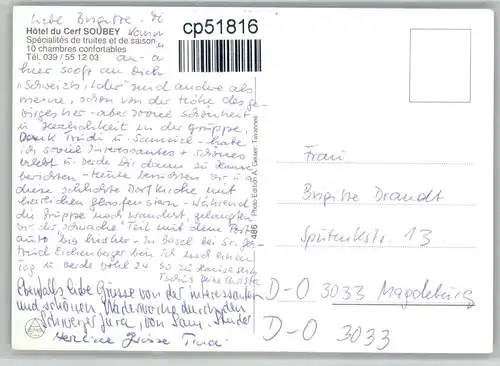 Liebe Brigitte - Di
Hôtel du Cerf SOUBEY
Spécialités de truites et de saison
10 chambres confortables
Tél. 039 / 55 12 03
cp51816
hier sooft an Dich
"Schweiz" sind andere als
meine, schon von der Höhe des Ge-
birges her - aber soviel Schönheit
u. Herzlichkeit in der Gruppe,
Dank Trudi u. Samuel - habe
ich soviel Interessantes + Schönes
erlebt u. werde Dir dann zu Hause
berichten - Heute besuchen wir u. a.
diese schlichte Dorfkirche mit
herrlichen Glasfenstern - Während
die Gruppe noch wandert, gelangten
wir der "schwache" Teil mit dem Post-
auto bis hierher - In Basel bei Sr. Ger-
trud Eichenberger bin ich noch einen
Tag u. werde wohl 24. 30 zu Hause sein
Tschüs Deine Christa
Ebenfalls liebe Grüsse von der interessanten
und schönen Wanderwoche durch den
Schweizer Jura, von Sam. Studer
Herzliche Grüsse Trudi
486 Photo Edition A. Geiser, Tavannes
Frau
Brigitte Brandt
Sputenikstr. 13
D-O 3033 Magdeburg
D-O 3033